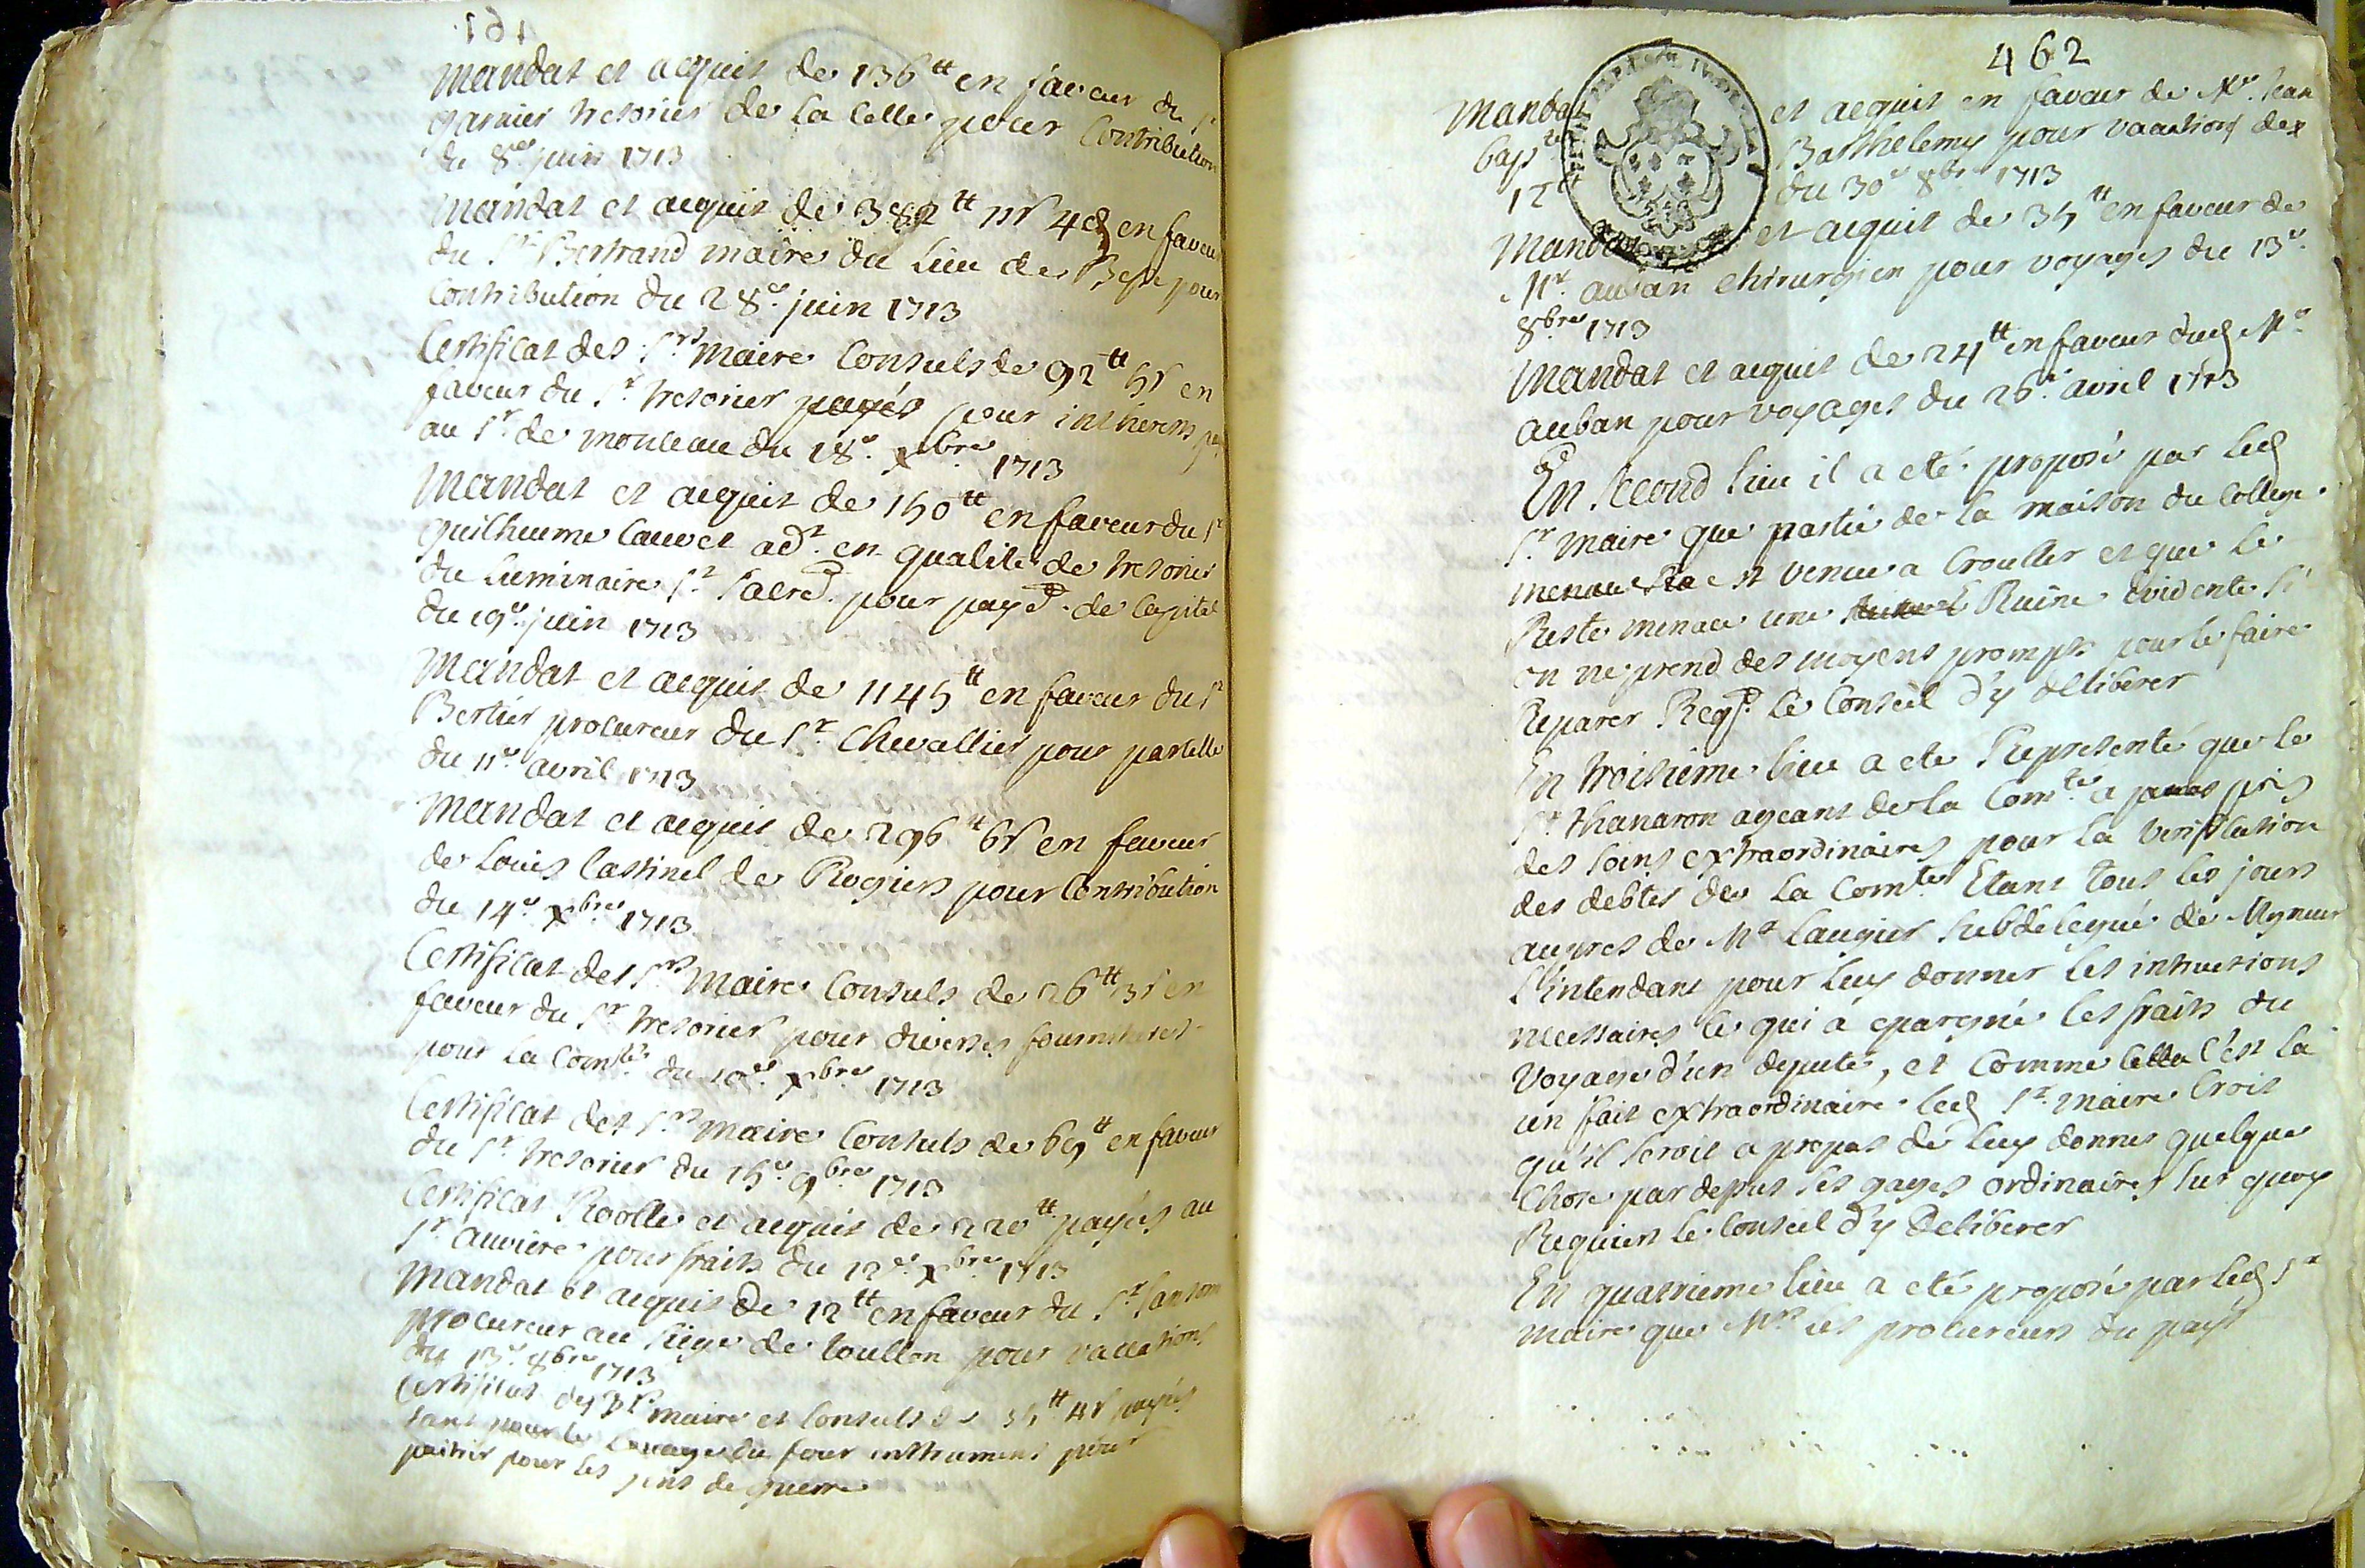 161
Mandat et acquit de 136 tt en faveur du Sr
garnier tresorier de la Celle pour Contribution
du 8e juin 1713
Mandat et acquit de 382 tt 11s 4d en faveur
du Sr Bertrand maire du lieu de Besse pour
Contribution du 28e juin 1713
Certificat des Srs Maire Consuls de 92 tt 5s en
faveur du Sr Tresorier payés pour intherets
au Sr de mouleau du 18e Xbre 1713
Mandat et acquit de 150 tt en faveur du Sr
guilheume Cauvet adt en qualité de tresorier
du Luminaire St Sacrt pour payt de Capital
du 19e juin 1713
Mandat et acquit de 1145 tt en faveur du Sr
Bertier procureur du Sr Chevallier pour parcelle
du 11e avril 1713
Mandat et acquit de 296 tt 6s en faveur
de Louis Castinel de Rogiers pour Contribution
du 14e Xbre 1713
Certificat des Srs Maire Consuls de 26 tt 3s en
faveur du Sr tresorier pour diverses fournitures
pour la Comté du 10e Xbre 1713
Certificat des Srs maire Consuls de 69 tt en faveur
du Sr tresorier du 15e 9bre 1713
Certificat Roolle et acquit de 220 tt payés au
Sr Auviere pour frais du 12e Xbre 1713
Mandat et acquit de 12 tt en faveur du Sr
procureur au siege de toullon pour vacations
du 13e 8bre 1713
Certificat des Srs maire et Consuls de 35 tt 4s payés
tant pour le Louage du four instrumens pour
paitrir pour les gens de guerre
462
Mandat et acquit en faveur de Me Jean
bapte Barthelemy pour vacations de
12 tt du 30e 8bre 1713
Mandat et acquit de 35 tt en faveur de
Mr auban chirurgien pour voyages du 13e
8bre 1713
Mandat et acquit de 24 tt en faveur dud Me
auban pour voyages du 26e avril 1713
En second lieu il a eté proposé par led
Sr Maire que partie de la maison du College
est venue a Crouller et que le
Reste menace une Ruine Evidente si
on ne prend des moyens prompts pour le faire
Reparer Reqt le Conseil d'y deliberer
En troisieme lieu a ete Representé que le
Sr thanaron ageant de la Comté a pris
des soins extraordinaires pour la veriffication
des debtes de la Comté Etant tous les jours
aupres de Mr Laugier subdelegué de Mgneur
l'intendant pour luy donner les intructions
necessaires ce qui a epargné les frais du
Voyage d'un deputé, et Comme Cella c'est la
un fait extraordinaire led Sr maire Croit
qu'il seroit a propos de luy donner quelque
Chose par depus ses gages ordinaires sur quoy
Requiert le Conseil d'y Deliberer
En quatrieme lieu a eté proposé par led Sr
maire que Mrs les procureurs du pays